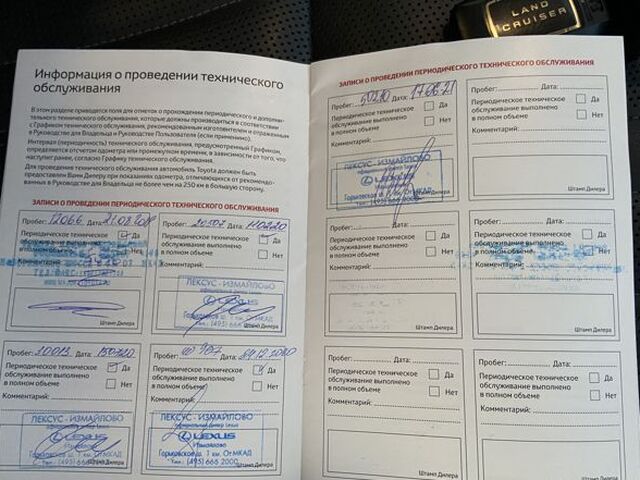 LAND
CRUISER
Информация о проведении технического
обслуживания
В этом разделе приводятся поля для отметок о прохождении периодического и дополни-
тельного технического обслуживания, которые должны производиться в соответствии
с Графиком технического обслуживания, рекомендованным изготовителем и отраженным
в Руководстве для Владельца и Руководстве Пользователя (если применимо).
Интервал (периодичность) технического обслуживания, предусмотренный Графиком,
определяется отсчетом одометра или промежутком времени, в зависимости от того, что
наступит ранее, согласно Графику технического обслуживания.
Для проведения технического обслуживания автомобиль Toyota должен быть
предоставлен Вами Дилеру при показаниях одометра, отличающихся от рекомендо-
ванных в Руководстве для Владельца не более чем на 250 км в большую сторону.
ЗАПИСИ О ПРОВЕДЕНИИ ПЕРИОДИЧЕСКОГО ТЕХНИЧЕСКОГО ОБСЛУЖИВАНИЯ
Пробег: 12066 Дата:
Периодическое техническое
обслуживание выполнено
в полном объеме
Да
Нет
Комментарий:
Пробег: 20507 Дата: 110220
Периодическое техническое
обслуживание выполнено
в полном объеме
Да
Нет
Комментарий:
ЛЕКСУС - ИЗМАЙЛОВО
официальный дилер Lexus
LEXUS
Горьковское ш. 1 км. От МКАД
Тел.: (495) 666 2000
Штамп Дилера
Пробег: 30013 Дата: 150720
Периодическое техническое
обслуживание выполнено
в полном объеме
Да
Нет
Комментарий:
ЛЕКСУС - ИЗМАЙЛОВО
официальный дилер Lexus
LEXUS
Измайлово
Горьковское ш. 1 км. От МКАД
Тел.: (495) 666 2000
Штамп Дилера
Пробег: Дата: 29.12.2020
Периодическое техническое
обслуживание выполнено
в полном объеме
Да
Нет
Комментарий:
ЛЕКСУС - ИЗМАЙЛОВО
официальный дилер Lexus
LEXUS
Измайлово
Горьковское ш. 1 км. От МКАД
Тел.: (495) 666 2000
Штамп Дилера
ЗАПИСИ О ПРОВЕДЕНИИ ПЕРИОДИЧЕСКОГО ТЕХНИЧЕСКОГО ОБСЛУЖИВАНИЯ
Пробег: 50210 Дата: 170621
Периодическое техническое
обслуживание выполнено
в полном объеме
Да
Нет
Комментарий:
ЛЕКСУС - ИЗМАЙЛОВО
официальный дилер Lexus
LEXUS
Горьковское ш. 1 км. От МКАД
Тел.: (495) 666 2000
Штамп Дилера
Пробег: Дата:
Периодическое техническое
обслуживание выполнено
в полном объеме
Да
Нет
Комментарий:
Штамп Дилера
Пробег: Дата:
Периодическое техническое
обслуживание выполнено
в полном объеме
Да
Нет
Комментарий:
Штамп Дилера
Пробег: Дата:
Периодическое техническое
обслуживание выполнено
в полном объеме
Да
Нет
Комментарий:
Штамп Дилера
Пробег: Дата:
Периодическое техническое
обслуживание выполнено
в полном объеме
Да
Нет
Комментарий:
Штамп Дилера
Пробег: Дата:
Периодическое техническое
обслуживание выполнено
в полном объеме
Да
Нет
Комментарий:
Штамп Дилера